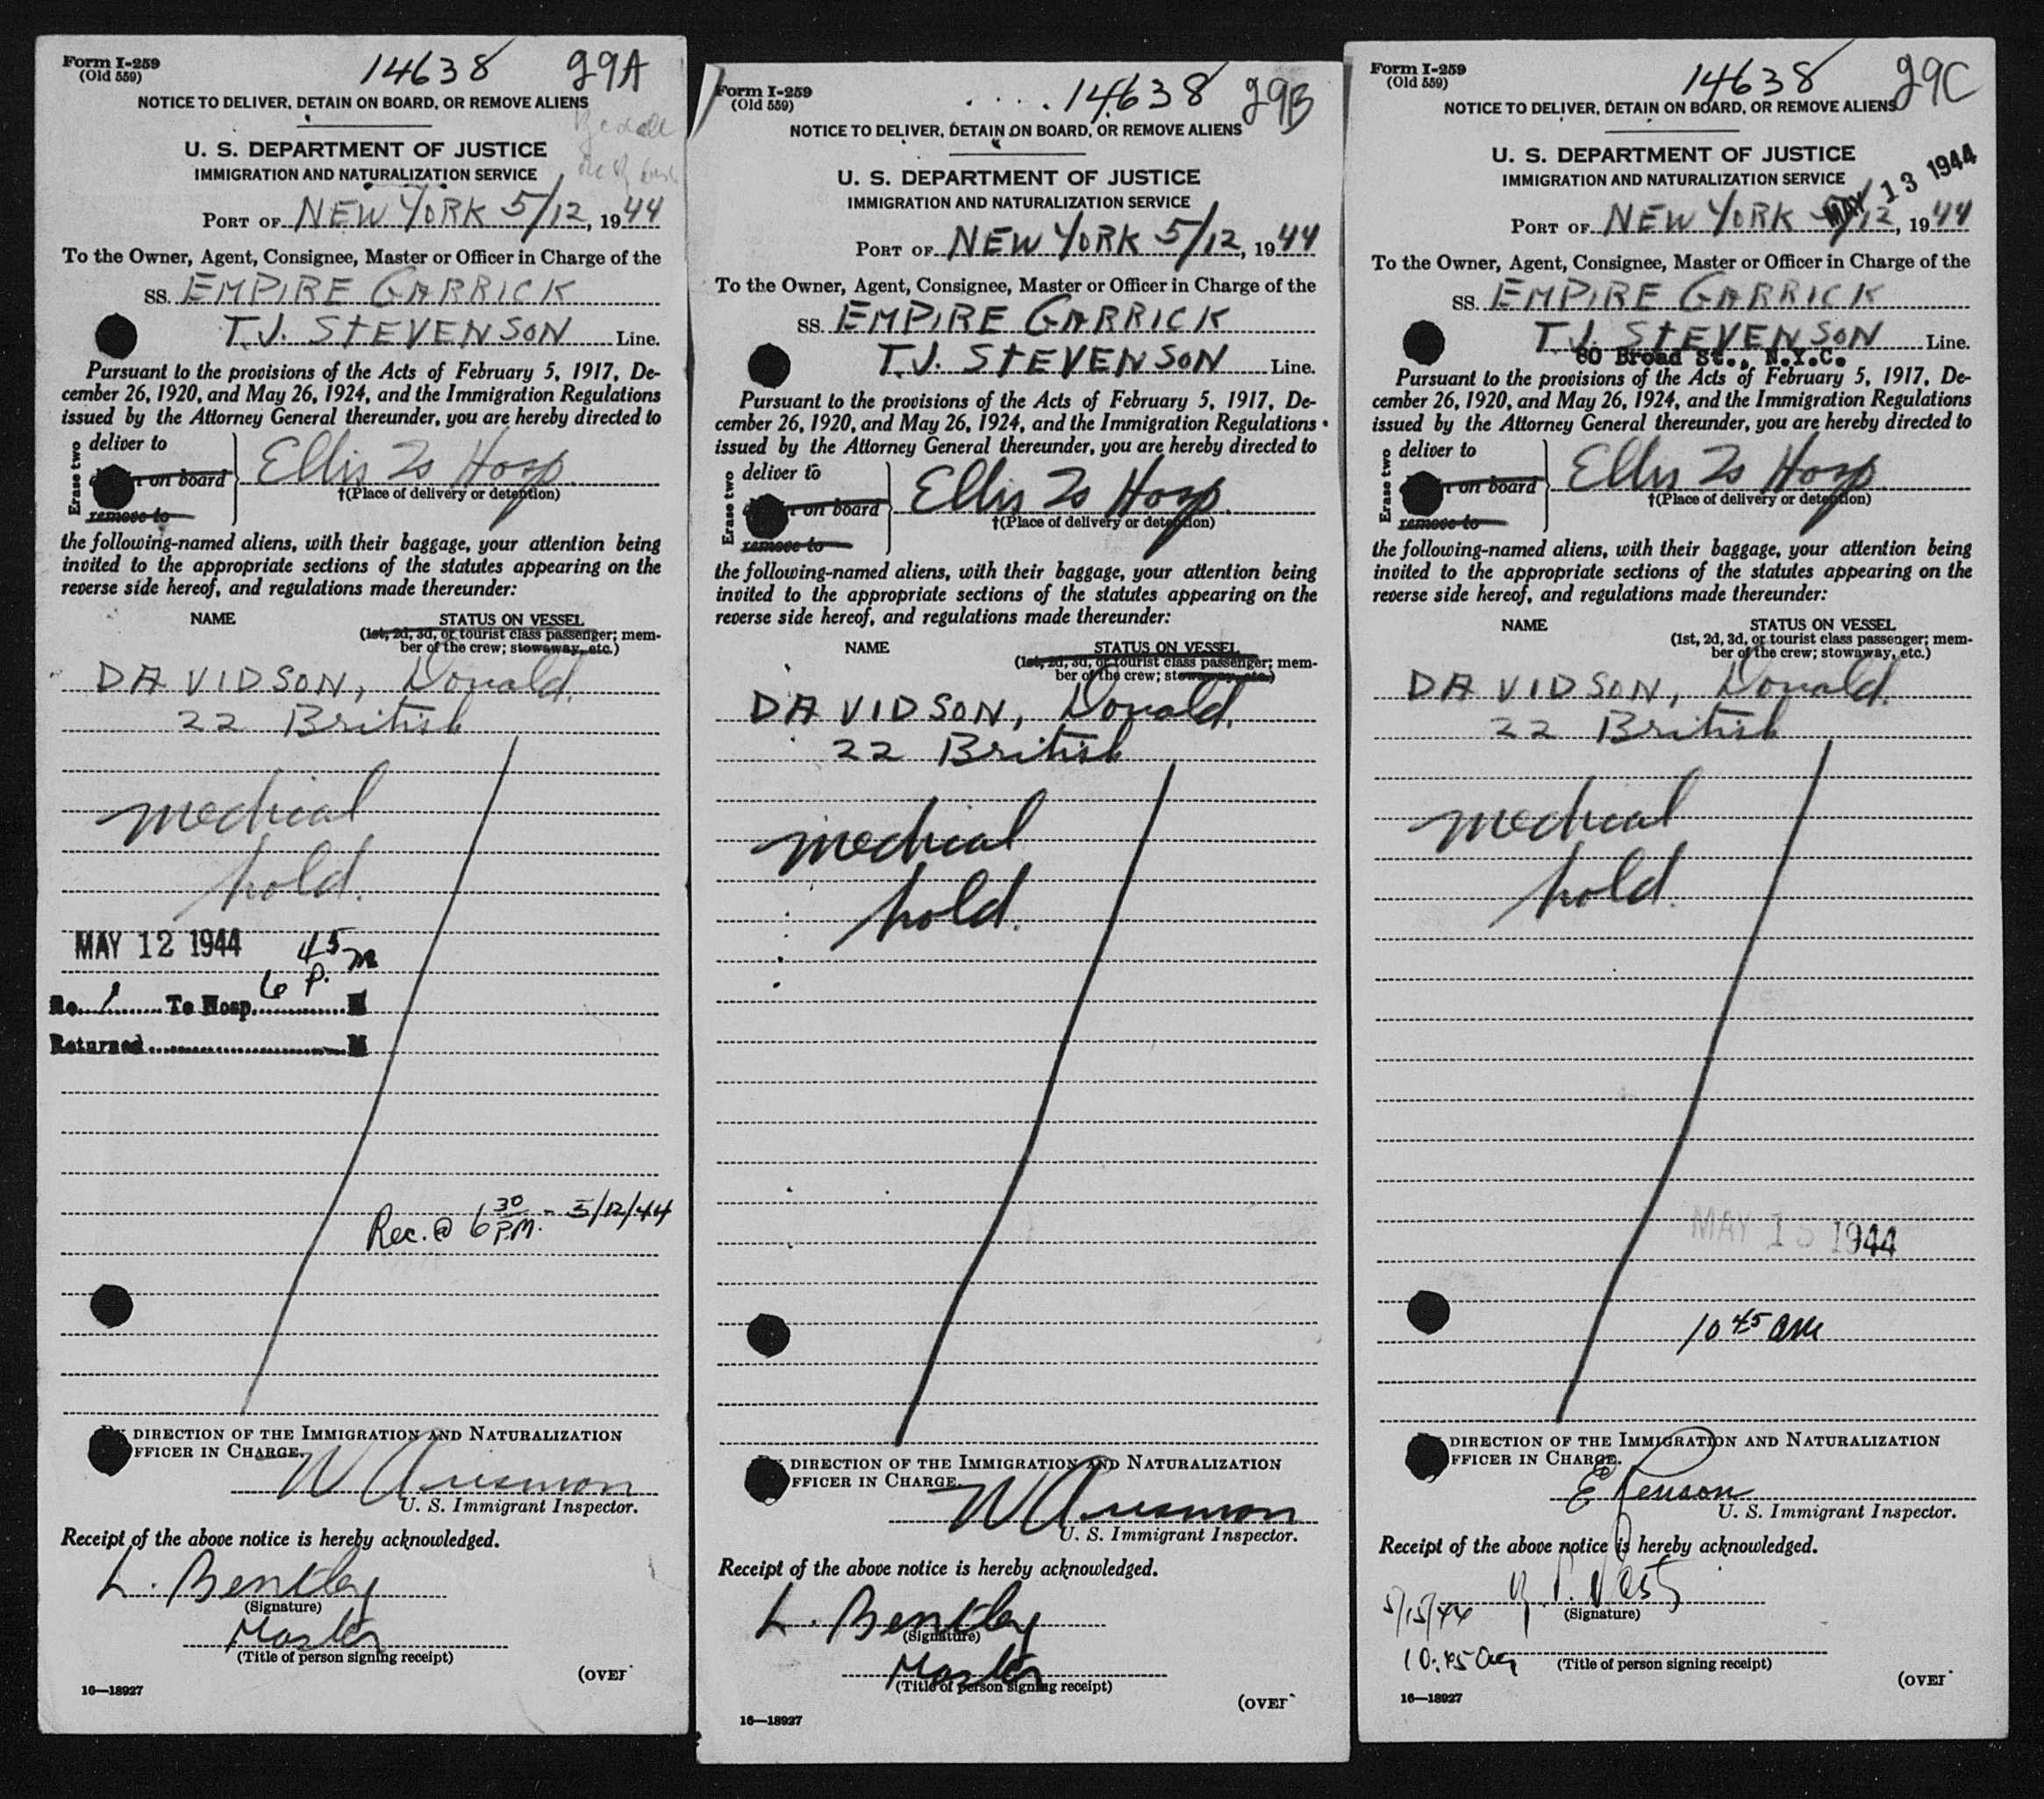 Form I-259
(Old 559)
14638
29A
NOTICE TO DELIVER, DETAIN ON BOARD, OR REMOVE ALIENS
U. S. DEPARTMENT OF JUSTICE
IMMIGRATION AND NATURALIZATION SERVICE
PORT OF NEW YORK 5/12, 1944
To the Owner, Agent, Consignee, Master or Officer in Charge of the
SS. EMPIRE GARRICK
T.J. STEVENSON Line.
Pursuant to the provisions of the Acts of February 5, 1917, De-
cember 26, 1920, and May 26, 1924, and the Immigration Regulations
issued by the Attorney General thereunder, you are hereby directed to
Erase two
deliver to
on board
remove to
Ellis Is Hosp.
†(Place of delivery or detention)
the following-named aliens, with their baggage, your attention being
invited to the appropriate sections of the statutes appearing on the
reverse side hereof, and regulations made thereunder:
NAME
STATUS ON VESSEL
(1st, 2d, 3d, or tourist class passenger; mem-
ber of the crew; stowaway, etc.)
DAVIDSON, Donald.
22 British
medical
hold.
MAY 12 1944
6 45 P. M
No. 1 To Hosp. M
Returned M
Rec. @ 6 30 P.M. - 5/12/44
DIRECTION OF THE IMMIGRATION AND NATURALIZATION
FFICER IN CHARGE.
U. S. Immigrant Inspector.
Receipt of the above notice is hereby acknowledged.
L. Bentley
(Signature)
Master
(Title of person signing receipt)
(OVER
16—18927
Form I-259
(Old 559)
14638
29B
NOTICE TO DELIVER, DETAIN ON BOARD, OR REMOVE ALIENS
U. S. DEPARTMENT OF JUSTICE
IMMIGRATION AND NATURALIZATION SERVICE
PORT OF NEW YORK 5/12, 1944
To the Owner, Agent, Consignee, Master or Officer in Charge of the
SS. EMPIRE GARRICK
T.J. STEVENSON Line.
Pursuant to the provisions of the Acts of February 5, 1917, De-
cember 26, 1920, and May 26, 1924, and the Immigration Regulations
issued by the Attorney General thereunder, you are hereby directed to
Erase two
deliver to
on board
remove to
Ellis Is Hosp.
†(Place of delivery or detention)
the following-named aliens, with their baggage, your attention being
invited to the appropriate sections of the statutes appearing on the
reverse side hereof, and regulations made thereunder:
NAME
STATUS ON VESSEL
(1st, 2d, 3d, or tourist class passenger; mem-
ber of the crew; stowaway, etc.)
DAVIDSON, Donald.
22 British
medical
hold.
DIRECTION OF THE IMMIGRATION AND NATURALIZATION
FFICER IN CHARGE.
U. S. Immigrant Inspector.
Receipt of the above notice is hereby acknowledged.
L. Bentley
(Signature)
Master
(Title of person signing receipt)
(OVER
16—18927
Form I-259
(Old 559)
14638
29C
NOTICE TO DELIVER, DETAIN ON BOARD, OR REMOVE ALIENS
U. S. DEPARTMENT OF JUSTICE
IMMIGRATION AND NATURALIZATION SERVICE
MAY 13 1944
PORT OF NEW YORK 5/12, 1944
To the Owner, Agent, Consignee, Master or Officer in Charge of the
SS. EMPIRE GARRICK
T.J. STEVENSON Line.
80 Broad St., N.Y.C.
Pursuant to the provisions of the Acts of February 5, 1917, De-
cember 26, 1920, and May 26, 1924, and the Immigration Regulations
issued by the Attorney General thereunder, you are hereby directed to
Erase two
deliver to
on board
remove to
Ellis Is Hosp.
†(Place of delivery or detention)
the following-named aliens, with their baggage, your attention being
invited to the appropriate sections of the statutes appearing on the
reverse side hereof, and regulations made thereunder:
NAME
STATUS ON VESSEL
(1st, 2d, 3d, or tourist class passenger; mem-
ber of the crew; stowaway, etc.)
DAVIDSON, Donald.
22 British
medical
hold.
MAY 15 1944
10 45 am
DIRECTION OF THE IMMIGRATION AND NATURALIZATION
FFICER IN CHARGE.
U. S. Immigrant Inspector.
Receipt of the above notice is hereby acknowledged.
5/15/44
(Signature)
10:45
(Title of person signing receipt)
(OVER
16—18927